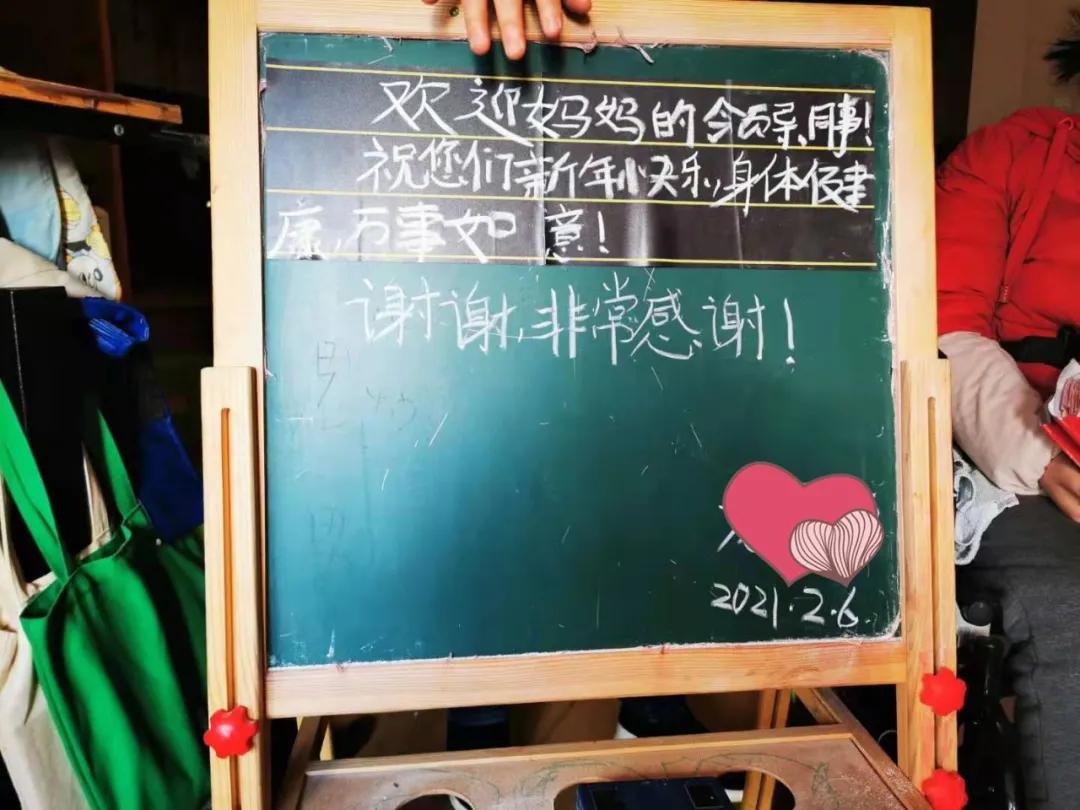 欢迎妈妈的领导、同事!
祝您们新年快乐,身体健
康,万事如意!
谢谢,非常感谢!
2021.2.6